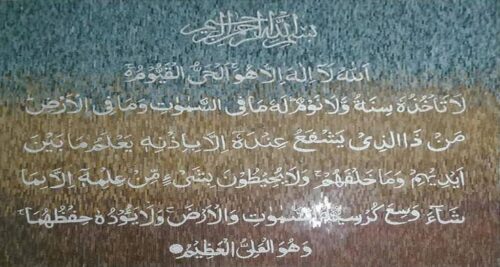 بسم الله الرحمن الرحيم
اَللهُ لَآ اِلٰهَ اِلَّا هُوَ اَلْحَيُّ الْقَيُّوْمُ
لَا تَأْخُذُهٗ سِنَةٌ وَّلَا نَوْمٌ لَهٗ مَا فِى السَّمٰوٰتِ وَمَا فِى الْاَرْضِ
مَنْ ذَا الَّذِىْ يَشْفَعُ عِنْدَهٗ اِلَّا بِاِذْنِهٖ يَعْلَمُ مَا بَيْنَ
اَيْدِيْهِمْ وَمَا خَلْفَهُمْ وَلَا يُحِيْطُوْنَ بِشَىْءٍ مِّنْ عِلْمِهٖ اِلَّا بِمَا
شَآءَ وَسِعَ كُرْسِيُّهُ السَّمٰوٰتِ وَالْاَرْضَ وَلَا يَئُوْدُهٗ حِفْظُهُمَا
وَهُوَ الْعَلِىُّ الْعَظِيْمُ